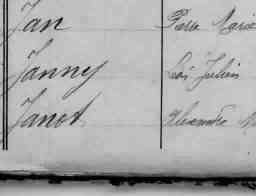 Jan Pierre Marie
Janny Léon Julien
Janot Alexandre